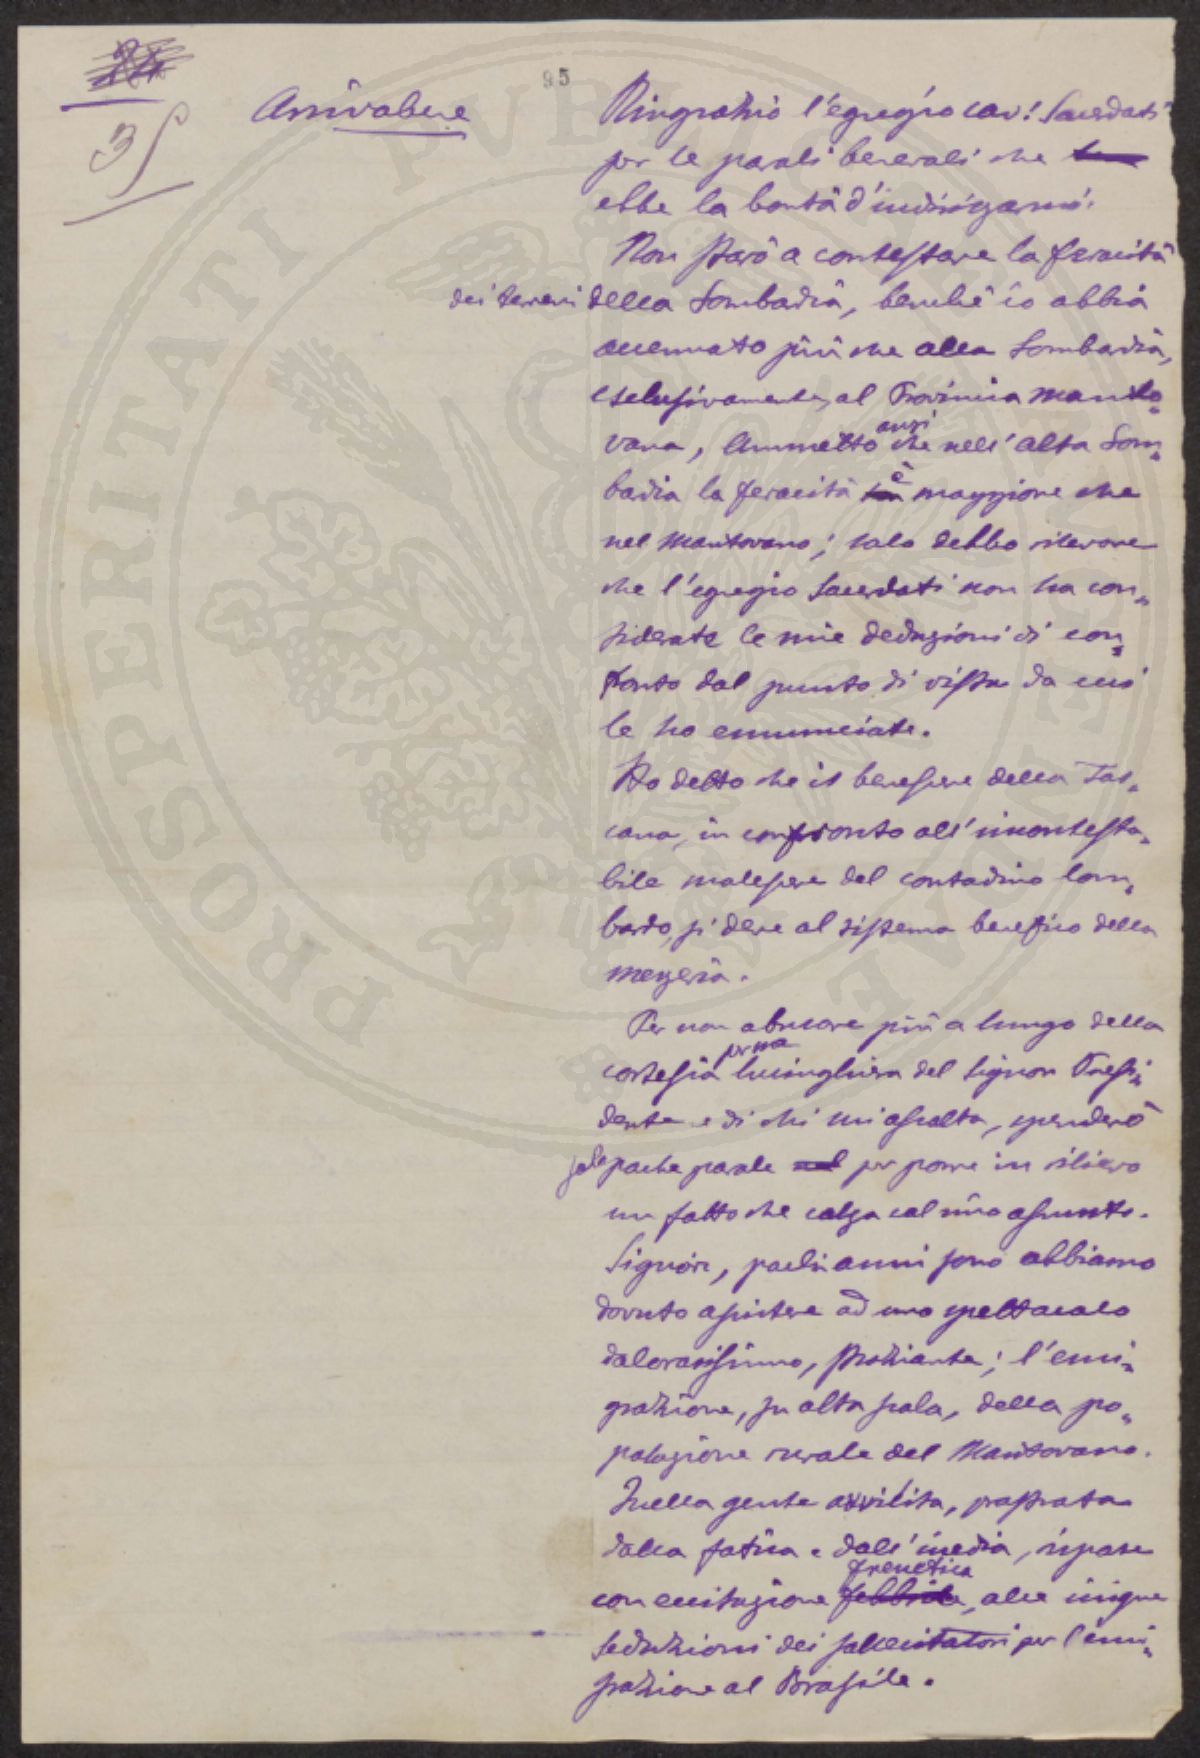 35
95
Arrivabene
Ringrazio l'egregio cav! Sacerdoti
per le parole benevoli che
ebbe la bontà d'indirizzarmi.
Non starò a contestare la feracità
dei terreni della Lombardia, benchè io abbia
accennato più che alla Lombardia,
esclusivamente, al Provincia manto-
vana, Ammetto anzi che nell'alta Lom-
bardia la feracità è maggiore che
nel Mantovano; solo debbo rilevare
che l'egregio Sacerdoti non ha con-
siderate le mie deduzioni di con-
fronto dal punto di vista da cui
le ho enunciate.
Ho detto che il benessere della Tos-
cana, in confronto all'incontesta-
bile malessere del contadino lom-
bardo, si deve al sistema benefico della
mezzeria.
Per non abusare più a lungo della
cortesia per me lusinghiera del signor Presi-
dente e di chi mi ascolta, spenderò
sole poche parole per porre in rilievo
un fatto che calza col mio assunto.
Signori, pochi anni sono abbiamo
dovuto assistere ad uno spettacolo
dolorosissimo, straziante; l'emi-
grazione, su alta scala, della po-
polazione rurale del Mantovano.
Quella gente avvilita, prostrata
dalla fatica e dall'inedia, rispose
con eccitazione frenetica, alle inique
seduzioni dei sollecitatori per l'emi-
grazione al Brasile.